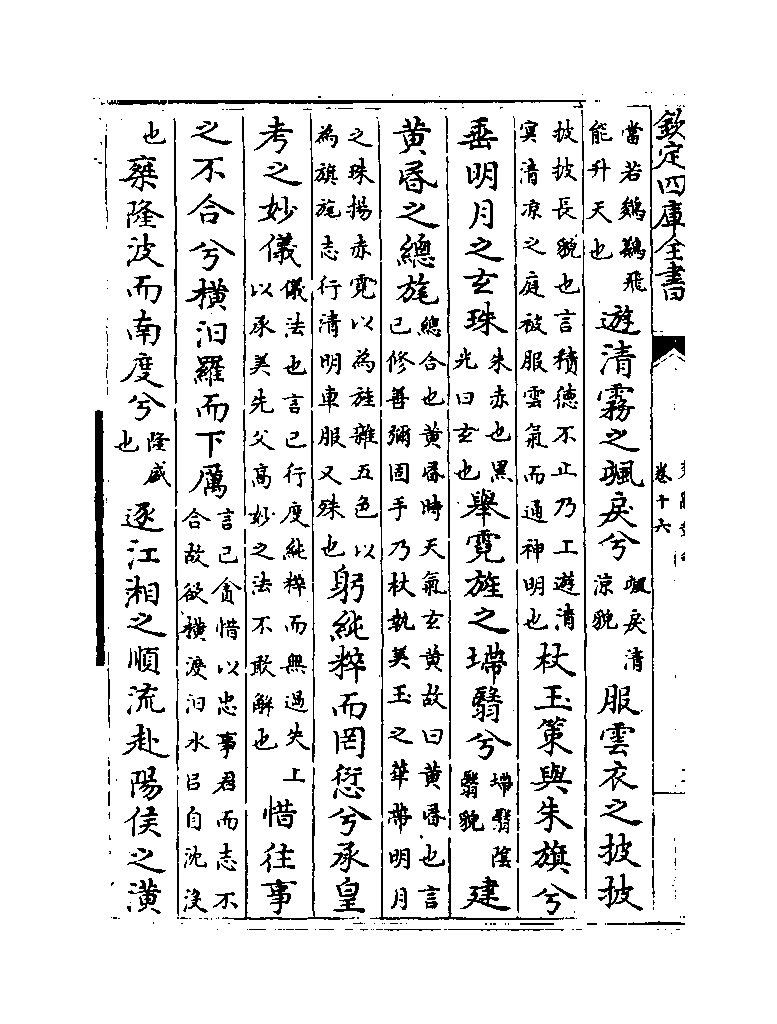 欽定四庫全書
卷十六
當若鵔鸃飛能升天也遊清霧之颯戾兮颯戾清涼貌服雲衣之披披
披披長貌也言積德不止乃上遊清冥清凉之庭被服雲氣而通神明也杖玉策與朱旗兮
垂明月之玄珠朱赤也黑光曰玄也舉霓旌之墆翳兮墆翳蔭翳貌建
黄昏之總旄總合也黄昏時天氣玄黄故曰黄昏也言已修善彌固手乃杖執美玉之華帶明月
之珠揚赤霓以為旌雜五色以為旗旄志行清明車服又殊也躬純粹而罔愆兮承皇
考之妙儀儀法也言已行度純粹而無過失上以承美先父高妙之法不敢解也惜往事
之不合兮横汨羅而下厲言已貪惜以忠事君而志不合故欲横渡汨水以自沈没
也椉隆波而南度兮隆盛也逐江湘之順流赴陽侯之潢